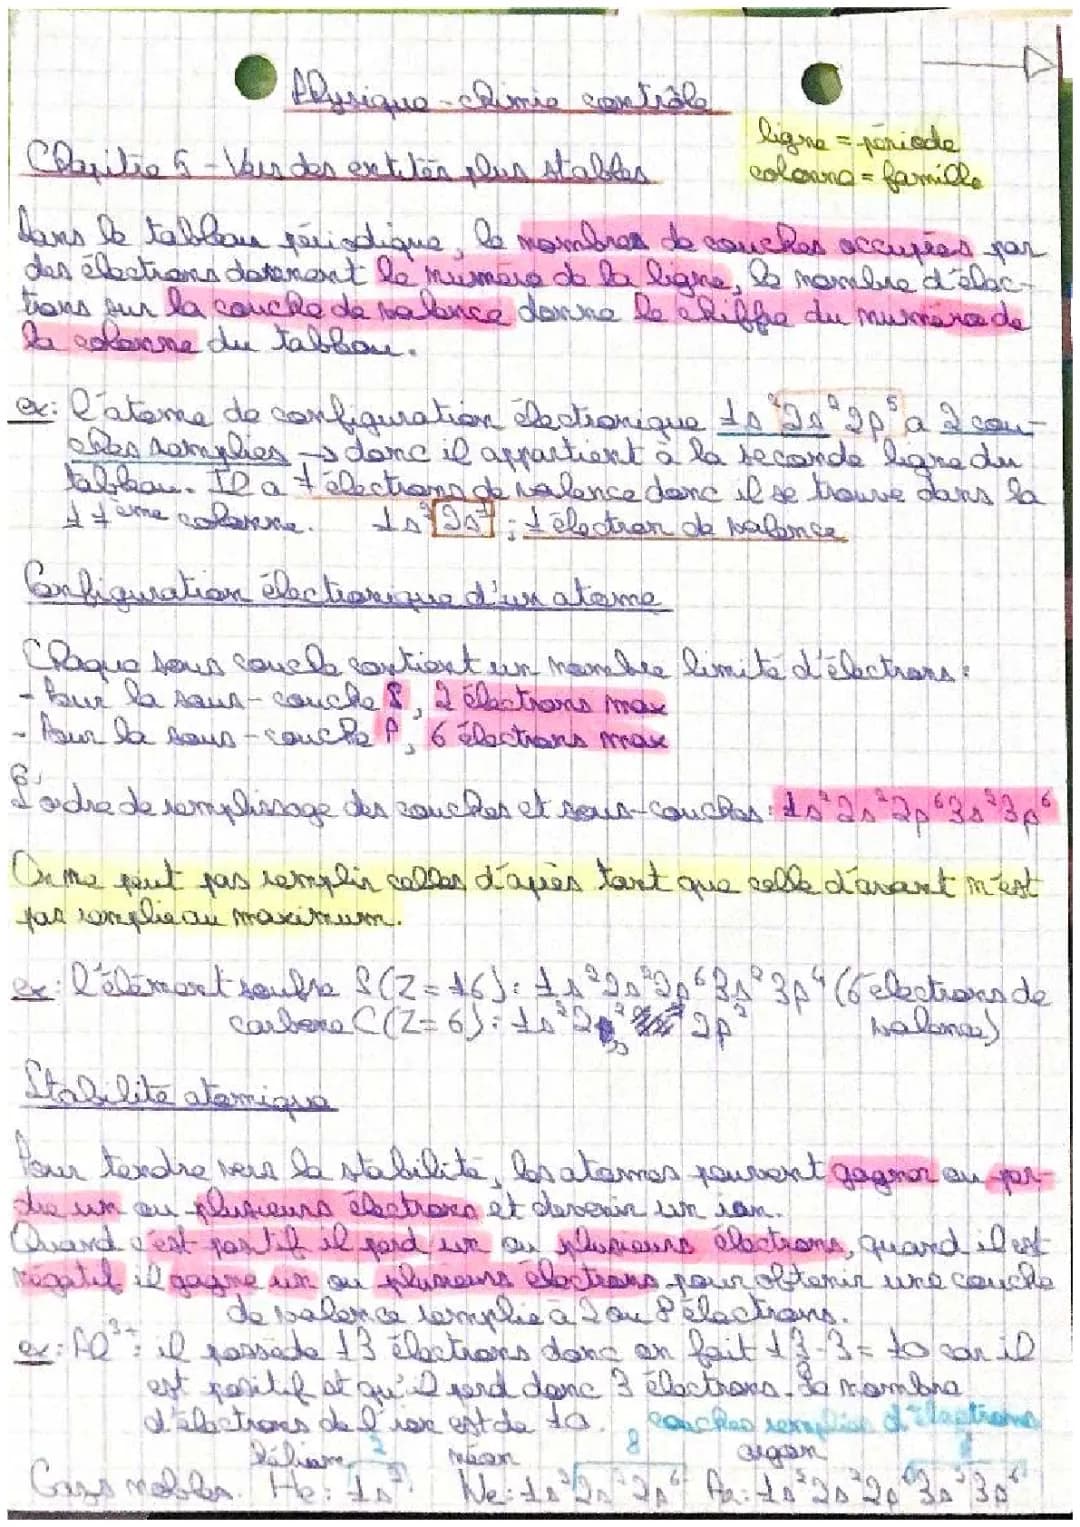 Physique-chimie contrôle
ligne = période
colonne = famille
Chapitre 5 - Vers des entités plus stables
Dans le tableau périodique, le nombres de couches occupées par
des électrons donnent le numéro de la ligne, le nombre d'élec-
trons sur la couche de valence donne le chiffre du numéro de
la colonne du tableau.
ex: l'atome de configuration électronique 1s² 2s² 2p⁵ a 2 cou-
ches remplies → donc il appartient à la seconde ligne du
tableau. Il a 7 électrons de valence donc il se trouve dans la
17ème colonne. 1s² 2s¹ : 1 électron de valence
Configuration électronique d'un atome
Chaque sous couche contient un nombre limité d'électrons:
- Pour la sous-couche S, 2 électrons max
- Pour la sous-couche P, 6 électrons max
L'ordre de remplissage des couches et sous-couches: 1s² 2s² 2p⁶ 3s² 3p⁶
On ne peut pas remplir celles d'après tant que celle d'avant n'est
pas remplie au maximum.
ex: l'élément soufre S (Z=16): 1s² 2s² 2p⁶ 3s² 3p⁴ (6 électrons de
carbone C (Z=6): 1s² 2s² 2p² valence)
Stabilité atomique
Pour tendre vers la stabilité, les atomes peuvent gagner ou per-
dre un ou plusieurs électrons et devenir un ion.
Quand c'est positif il perd un ou plusieurs électrons, quand il est
négatif il gagne un ou plusieurs électrons pour obtenir une couche
de valence remplie à 2 ou 8 électrons.
ex: Al³⁺: il possède 13 électrons donc on fait 13-3=10 car il
est positif et qu'il perd donc 3 électrons. Le nombre
d'électrons de l'ion est de 10. couches remplies d'électrons
hélium 2 néon 8 argon 8
Gazs nobles. He: 1s² Ne: 1s² 2s² 2p⁶ Ar: 1s² 2s² 2p⁶ 3s² 3p⁶